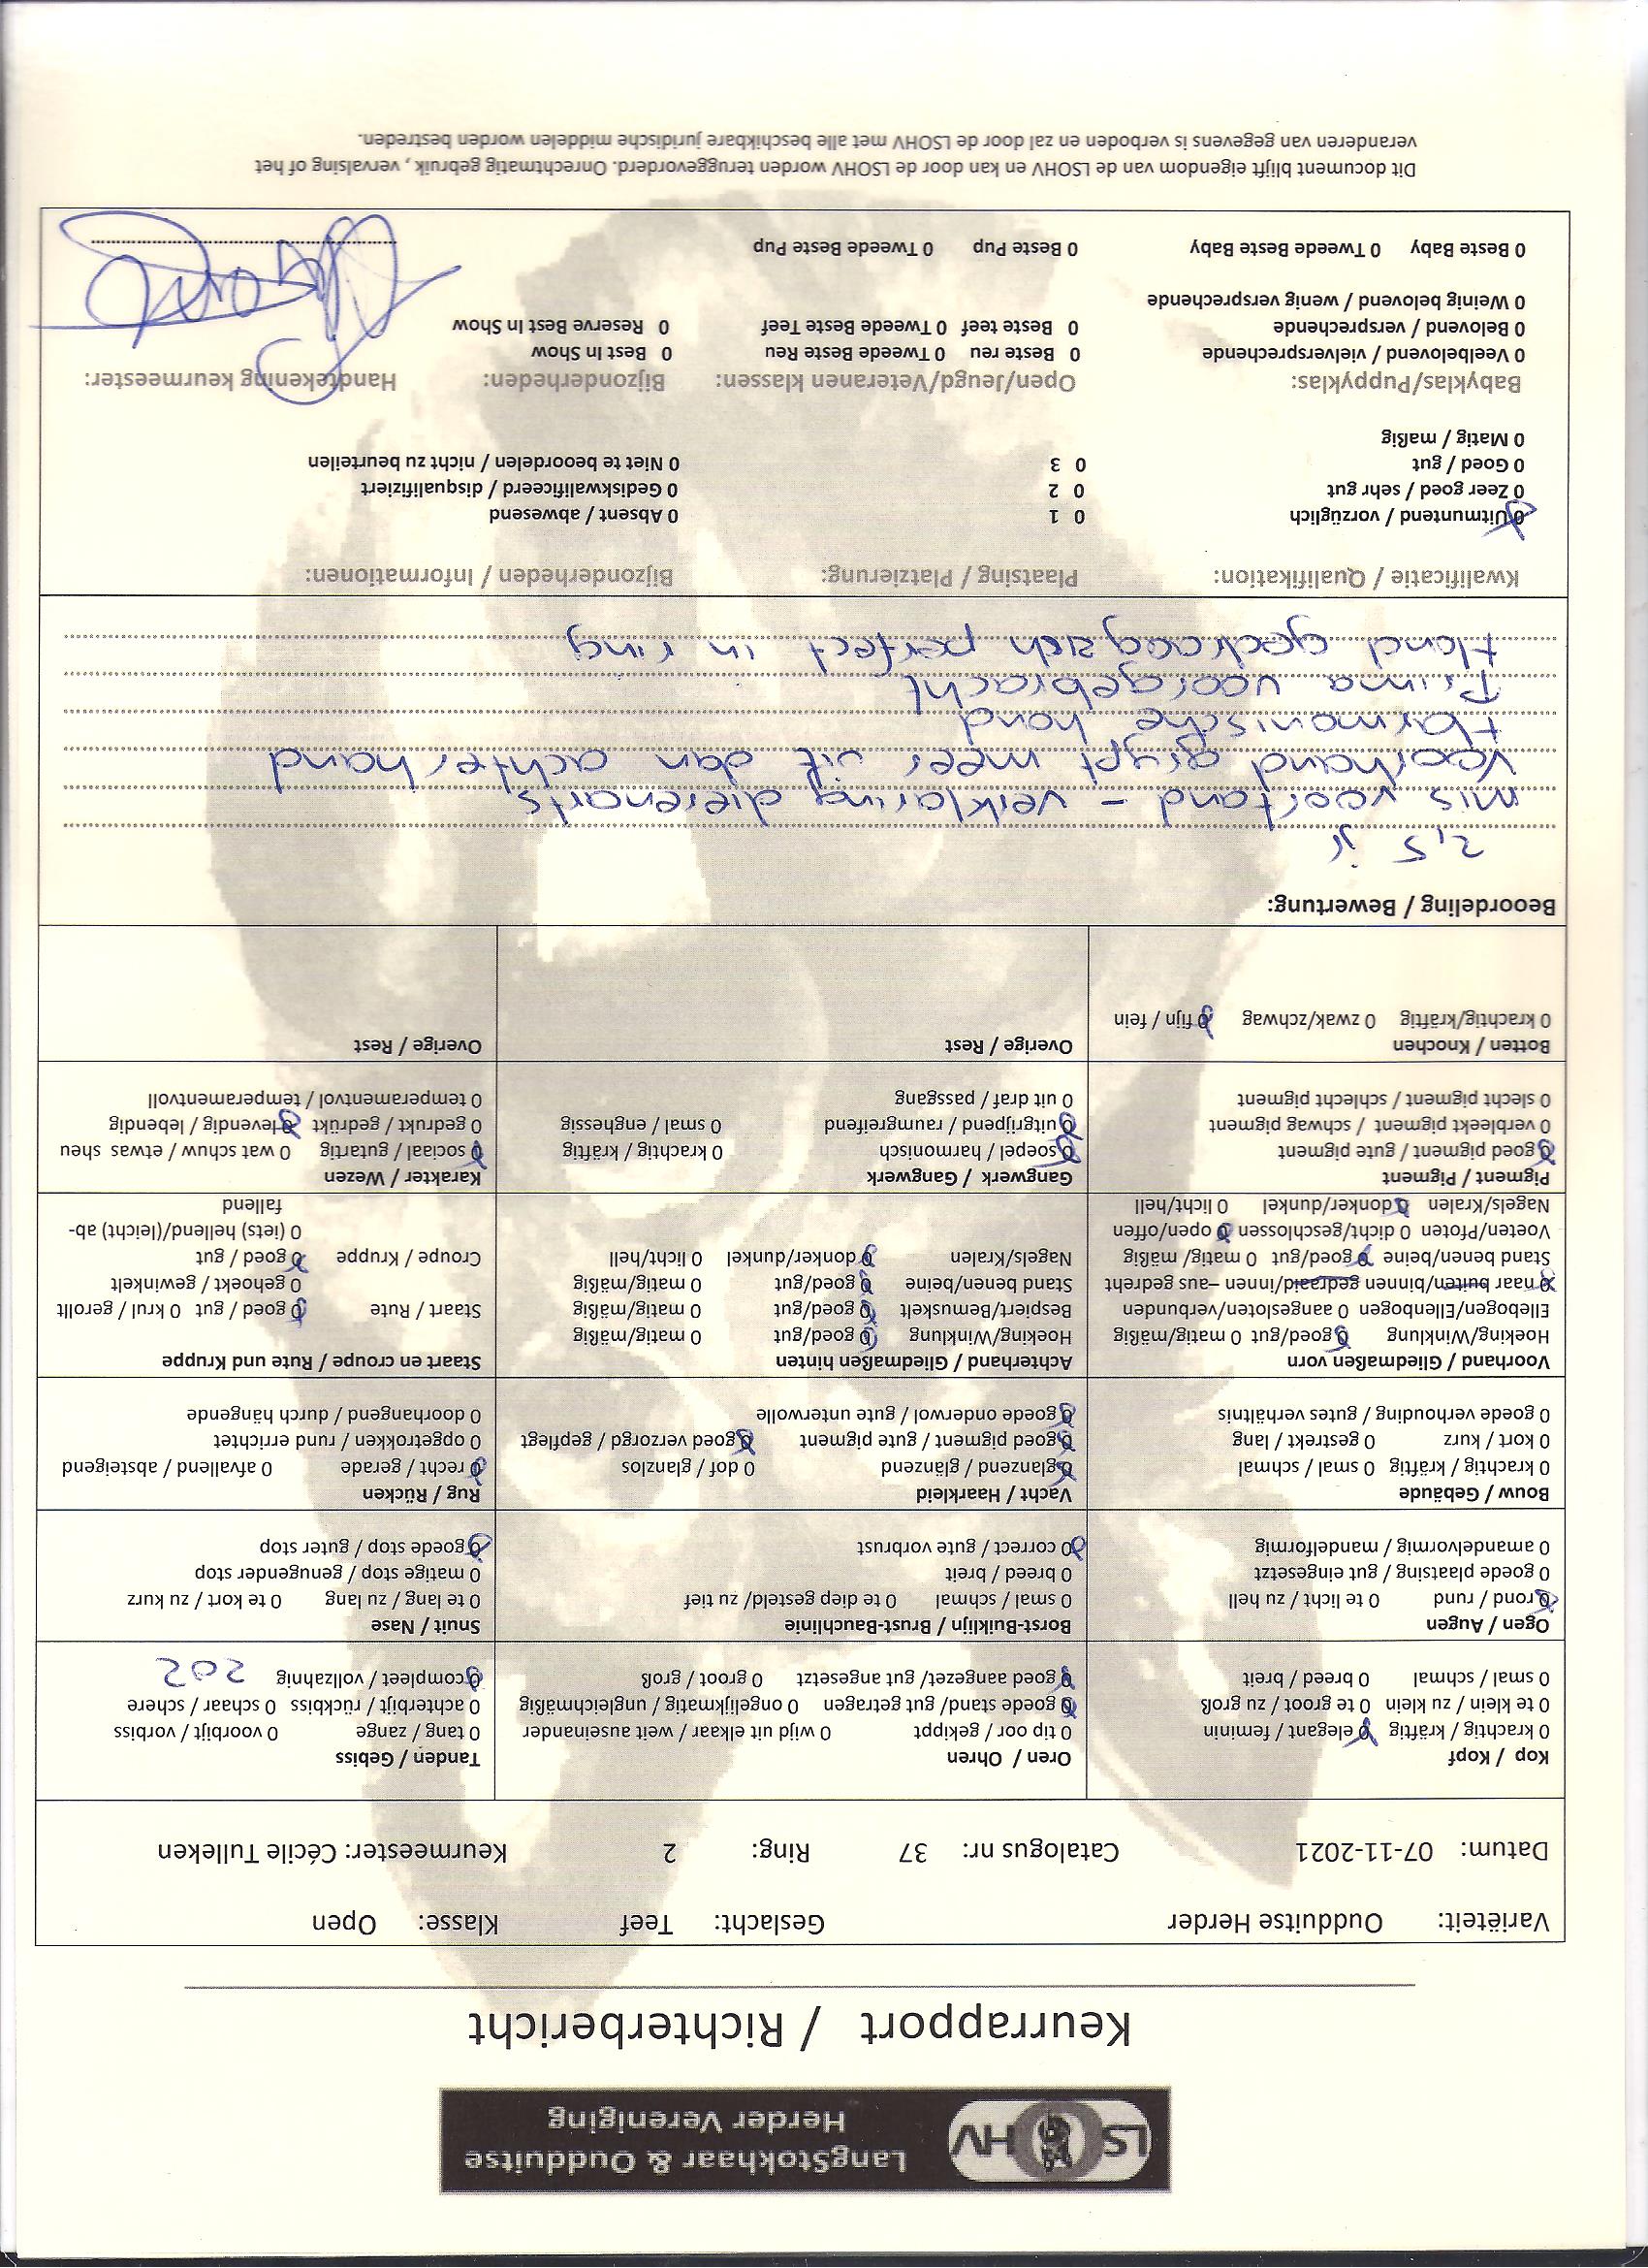 LS HV
LangStokhaar & Oudduitse
Herder Vereniging
Keurrapport / Richterbericht
Variëteit: Oudduitse Herder Geslacht: Teef Klasse: Open
Datum: 07-11-2021 Catalogus nr: 37 Ring: 2 Keurmeester: Cécile Tulleken
Kop / Kopf
0 krachtig / kräftig 0 elegant / feminin
0 te klein / zu klein 0 te groot / zu groß
0 smal / schmal 0 breed / breit
Oren / Ohren
0 tip oor / gekippt 0 wijd uit elkaar / weit auseinander
0 goede stand/ gut getragen 0 ongelijkmatig / ungleichmäßig
0 goed aangezet/ gut angesetzt 0 groot / groß
Tanden / Gebiss
0 tang / zange 0 voorbijt / vorbiss
0 achterbijt / rückbiss 0 schaar / schere
0 compleet / vollzahnig 202
Ogen / Augen
0 rond / rund 0 te licht / zu hell
0 goede plaatsing / gut eingesetzt
0 amandelvormig / mandelformig
Borst-Buiklijn / Brust-Bauchlinie
0 smal / schmal 0 te diep gesteld/ zu tief
0 breed / breit
0 correct / gute vorbrust
Snuit / Nase
0 te lang / zu lang 0 te kort / zu kurz
0 matige stop / genugender stop
0 goede stop / guter stop
Bouw / Gebäude
0 krachtig / kräftig 0 smal / schmal
0 kort / kurz 0 gestrekt / lang
0 goede verhouding / gutes verhältnis
Vacht / Haarkleid
0 glanzend / glänzend 0 dof / glanzlos
0 goed pigment / gute pigment 0 goed verzorgd / gepflegt
0 goede onderwol / gute unterwolle
Rug / Rücken
0 recht / gerade 0 afvallend / absteigend
0 opgetrokken / rund errichtet
0 doorhangend / durch hängende
Voorhand / Gliedmaßen vorn
Hoeking/Winklung 0 goed/gut 0 matig/mäßig
Ellebogen/Ellenbogen 0 aangesloten/verbunden
0 naar buiten/binnen gedraaid/innen –aus gedreht
Stand benen/beine 0 goed/gut 0 matig/ mäßig
Voeten/Pfoten 0 dicht/geschlossen 0 open/offen
Nagels/Kralen 0 donker/dunkel 0 licht/hell
Achterhand / Gliedmaßen hinten
Hoeking/Winklung 0 goed/gut 0 matig/mäßig
Bespiert/Bemuskelt 0 goed/gut 0 matig/mäßig
Stand benen/beine 0 goed/gut 0 matig/mäßig
Nagels/Kralen 0 donker/dunkel 0 licht/hell
Staart en croupe / Rute und Kruppe
Staart / Rute 0 goed / gut 0 krul / gerollt
0 gehoekt / gewinkelt
Croupe / Kruppe 0 goed / gut
0 (iets) hellend/(leicht) ab-
fallend
Pigment / Pigment
0 goed pigment / gute pigment
0 verbleekt pigment / schwag pigment
0 slecht pigment / schlecht pigment
Gangwerk / Gangwerk
0 soepel / harmonisch 0 krachtig / kräftig
0 uitgrijpend / raumgreifend 0 smal / enghessig
0 uit draf / passgang
Karakter / Wezen
0 sociaal / gutartig 0 wat schuw / etwas sheu
0 gedrukt / gedrükt 0 levendig / lebendig
0 temperamentvol / temperamentvoll
Botten / Knochen
0 krachtig/kräftig 0 zwak/zchwag 0 fijn / fein
Overige / Rest
Overige / Rest
Beoordeling / Bewertung:
2,5 jr
mis voortand - verklaring dierenarts
Voorhand grypt meer uit dan achterhand
Harmonische hond
Prima voorgebracht
Hond gedraag zich perfect in ring
Kwalificatie / Qualifikation: Plaatsing / Platzierung: Bijzonderheden / Informationen:
0 Uitmuntend / vorzüglich 0 1 0 Absent / abwesend
0 Zeer goed / sehr gut 0 2 0 Gediskwalificeerd / disqualifiziert
0 Goed / gut 0 3 0 Niet te beoordelen / nicht zu beurteilen
0 Matig / mäßig
Babyklas/Puppyklas: Open/Jeugd/Veteranen klassen: Bijzonderheden: Handtekening keurmeester:
0 Veelbelovend / vielversprechende 0 Beste reu 0 Tweede Beste Reu 0 Best In Show
0 Belovend / versprechende 0 Beste teef 0 Tweede Beste Teef 0 Reserve Best In Show
0 Weinig belovend / wenig versprechende
0 Beste Baby 0 Tweede Beste Baby 0 Beste Pup 0 Tweede Beste Pup
Dit document blijft eigendom van de LSOHV en kan door de LSOHV worden teruggevorderd. Onrechtmatig gebruik , vervalsing of het
veranderen van gegevens is verboden en zal door de LSOHV met alle beschikbare juridische middelen worden bestreden.